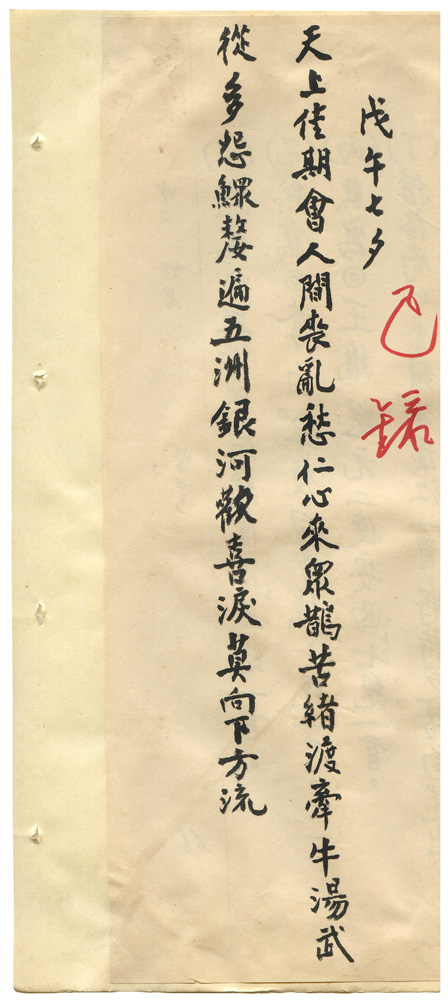 戊午七夕
已錄
天上佳期會人間喪亂愁仁心來眾鵲苦緒渡牽牛湯武
從多怨鰥嫠遍五洲銀河歡喜淚莫向下方流